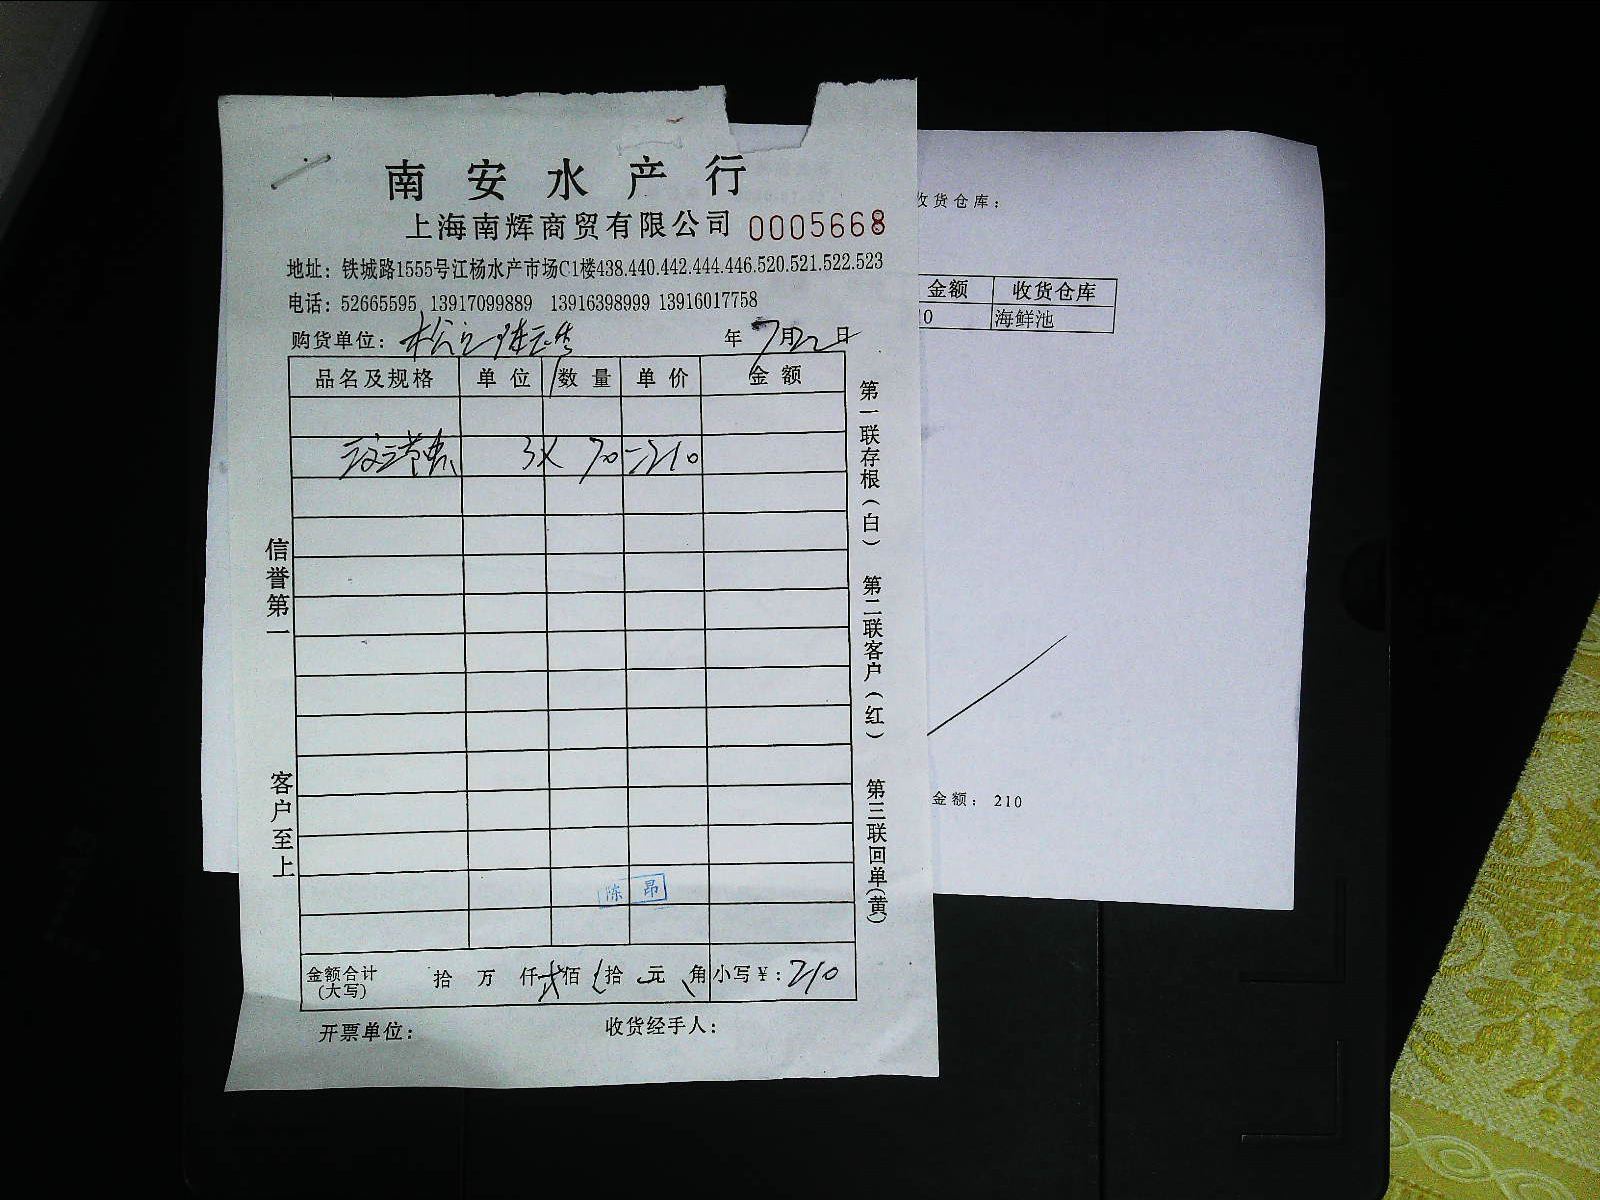 南安水产行
上海南辉商贸有限公司 0005668
地址：铁城路1555号江杨水产市场C1楼438.440.442.444.446.520.521.522.523
电话：52665595 13917099889 13916398999 13916017758
购货单位：
年7月22日
品名及规格 单位 数量 单价 金额
3X 70=210
信誉第一
客户至上
第一联存根（白） 第二联客户（红） 第三联回单（黄）
陈昂
金额合计（大写） 拾 万 仟 贰佰 拾 元 角 小写￥：210
开票单位： 收货经手人：
收货仓库：
金额 收货仓库
10 海鲜池
金额：210